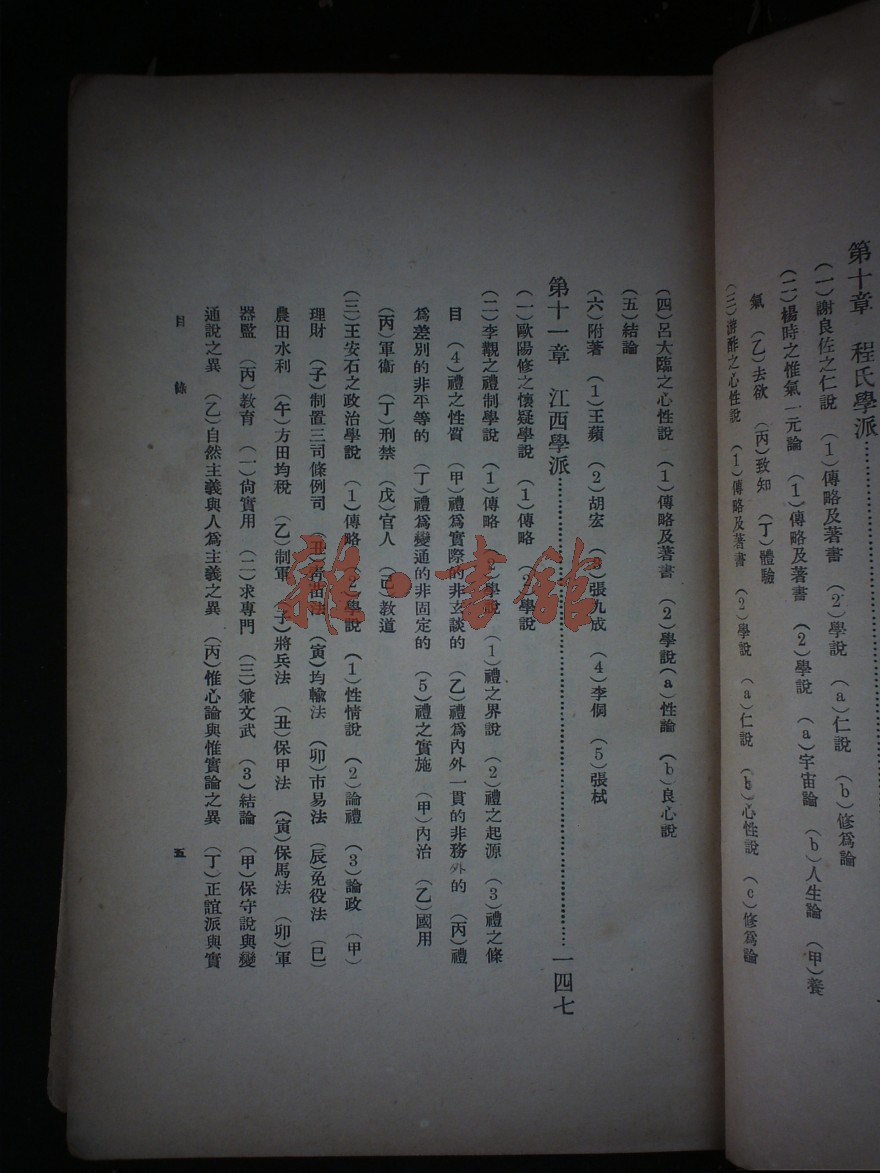 第十章　程氏學派
（一）謝良佐之仁說　（1）傳略及著書　（2）學說　（a）仁說　（b）修爲論
（二）楊時之惟氣一元論　（1）傳略及著書　（2）學說　（a）宇宙論　（b）人生論　（甲）養
氣　（乙）去欲　（丙）致知　（丁）體驗
（三）游酢之心性說　（1）傳略及著書　（2）學說　（a）仁說　（b）心性說　（c）修爲論
（四）呂大臨之心性說　（1）傳略及著書　（2）學說（a）性論　（b）良心說
（五）結論
（六）附著　（1）王蘋　（2）胡宏　（3）張九成　（4）李侗　（5）張栻
第十一章　江西學派……一四七
（一）歐陽修之懷疑學說　（1）傳略　（2）學說
（二）李覯之禮制學說　（1）傳略　（2）學說　（1）禮之界說　（2）禮之起源　（3）禮之條
目　（4）禮之性質　（甲）禮爲實際的非玄談的　（乙）禮爲內外一貫的非務外的　（丙）禮
爲差別的非平等的　（丁）禮爲變通的非固定的　（5）禮之實施　（甲）內治　（乙）國用
（丙）軍衛　（丁）刑禁　（戊）官人　（己）教道
（三）王安石之政治學說　（1）傳略　（2）學說　（1）性情說　（2）論禮　（3）論政　（甲）
理財　（子）制置三司條例司　（丑）青苗法　（寅）均輸法　（卯）市易法　（辰）免役法　（巳）
農田水利　（午）方田均稅　（乙）制軍　（子）將兵法　（丑）保甲法　（寅）保馬法　（卯）軍
器監　（丙）教育　（一）尙實用　（二）求專門　（三）兼文武　（3）結論　（甲）保守說與變
通說之異　（乙）自然主義與人爲主義之異　（丙）惟心論與惟實論之異　（丁）正誼派與實
目　錄　五
雜·書館